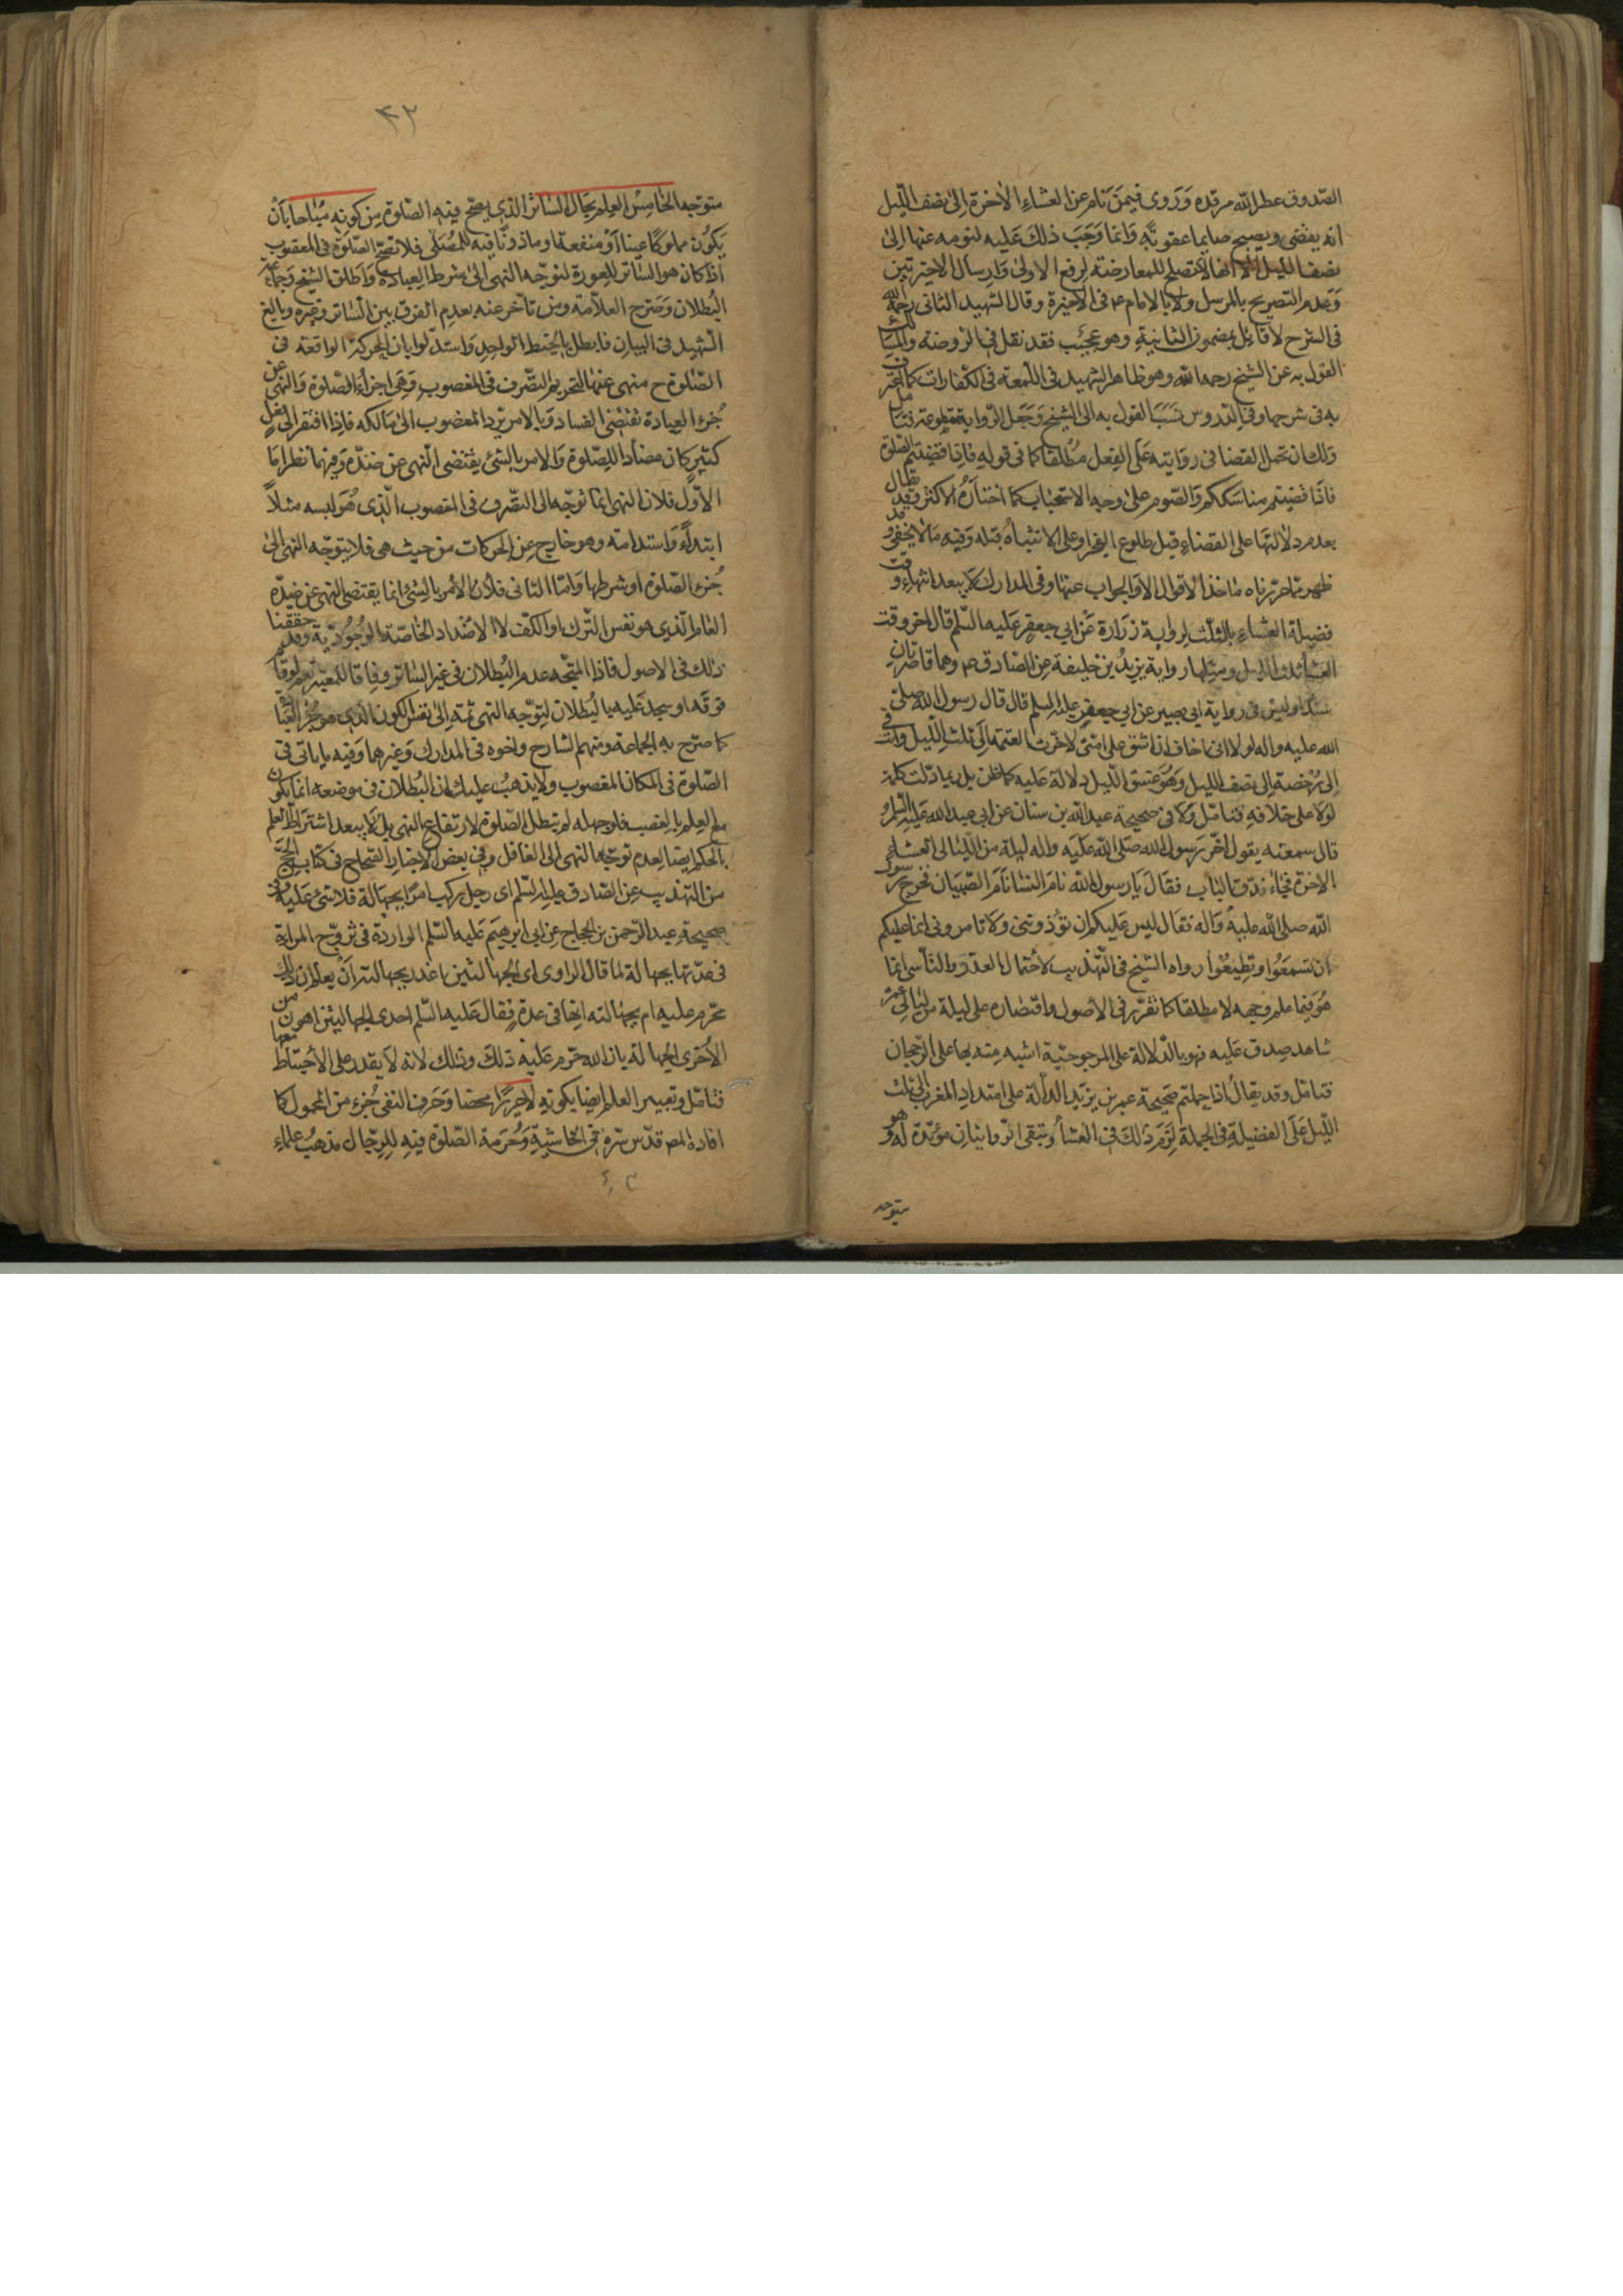 الصّدوق عطر الله مرقده وَرَوى فيمَن نام عن العشاءِ الاخرة اِلى نصف اللّيل
انه يقضى ويصبح صايما عقوبةً وَانما وَجَبَ ذلكَ عَليه لنومه عنها اِلى
نصف الليل الا انها لا تصلح للمعارضة لرفع الاولى وَارسال الاخيرتين
وَعدم التصريح بالمرسل ولا بالامام ع في الاخيرة وقال الشهيد الثانى رحمه الله
فى الشرح لا قائل بمضمون الثانيةِ وهو عجيْب فقد نقل في الروضة والمسالك
القول به عن الشيخ رحمه الله وهو ظاهر الشهيد فى اللمعة فى الكفارات كما اعترف
به فى شرحها وفى الدروس نسَبَ القول به الى الشيخ وَجَعل الرّواية مقطوعة فتامل
وَلك ان تحمل القضا فى روَايته عَلى الفِعل مُطلقا كما فى قوله فاذا قضيتم الصلوة
فاذا قضيتم مناسككم وَالصّوم على وجه الاستحباب كما اختاَرهُ الاكثر وَقد يقال
بعدم دلالتها على القضاءِ قبل طلوع الفجر اوعلى الانتباه قبله وَفيه مَا لا يخفى وقد
ظهر ممّا حرّرناه ماخذ الاقوال الا والجواب عنها وفى المدارك لا يبعد انتهاء وقت
فضيلة العشاءِ بالثلث لرواية زرَارة عَنْ ابي جعفرٍ عَليه السّلم قال اخر وقت
العشا ثلث الليل ومثلها رواية يزيدُ بن خليفة عن الصّادق ع م وهما قاصرتان
سنداوليس فى رواية ابى بصير عن ابى جعفرٍ عليه السلم قال قال رسول الله صلى
الله عليه واله لولا انى اخاف ان اشق على امّتى لاخّرت العتمة الى ثلث الليل وانت فى
رُخصة اِلى نصف الليل وَهُوَ غسق اللّيل دلالة عَليه كما ظن بل ربما دلّت كلمة
لولا على خلافه فتامّل وَلا فى صحيحة عبد اللّه بن سنان عن ابى عبد الله عَليه السّلم
قال سمعته يقول اخّر رَسول الله صَلى اللّه عَليَه واله ليلة من الليالى العشاء
الاخرة فجاء فدّق الباب فقال يَا رسول اللّه نامَ النسَا نَامَ الصّبيان فخرج رسول
اللّه صلى اللّه عليهَ وَاله فقال ليس عَليكم ان تؤذونى وَلا تامرونى انما عليكم
ان تسمعَوُا وتطِيعُوا رواه الشيخ فى التّهذيب لاحتمال العذر والتأسى انما
هُوَ فيما علم وَجهه لا مطلقا كما تقرّر فى الأصول واقتصاره على ليلة من ليالى
شاهد صدق عَليه فهو بالدّلالة على المرجوحيّة اشبه منه بها على الرّجحان
فتامّل وقد يقال اذا حملتم صَحيحة عمر بن يزيد الدالّة على امتداد المغرب الى ثلث
اللّيل عَلَى الفضيلةِ فى الجملة لَزمَ ذلكَ فى العشاءَ وتبقى الروايتانِ مؤيّدة له وهو
متوجه
۴۲
متوجّه الخامِسُ العِلم بحَال السّاتر الذى يصحّ فيه الصّلوة مِن كونه مُباحا بأنْ
يَكُون مملوكًا عينا اَوْ منفعة او ماذونًا فيه للمُصَلّى فلا تصحّ الصّلوَة فى المغصوب
اذا كان هو السّاتر للعورة لتوجّه النهى الى شرط العِبادة وَاطلق الشيخ وَجماعة
البُطلان وَصرّح العلاّمة ومَن تأخر عنه بعدم الفرق بين السّاتر وغيره وبالغ
الشّهيد فى البيان فابطل بالخيط الواحد وَاستدلّوا بان الحركة الواقعة فى
الصّلوة ح منهى عنها لتحريم التّصرف فى المغصوب وَهى اجزاء الصّلوة وَالنهى عن
جُزءِ العِبادة تقتضى الفساد وَبالامر بردّ المغصوب الى مَالكه فاذا افتقر الى فعل
كثير كان مضادّا للصّلوة وَالامر بالشئ يقتضى النّهى عن ضدّه وَفيهما نظر امّا
الأوّل فلان النهى انما توجّه الى التصّرف فى المغصوب الّذى هُوَ لبسه مثلاً
ابتداءً وَاستدامة وهو خارج عن الحركات من حيث هى فلا يتوجّه النهى الى
جُزء الصّلوة اوشرطها وَامّا الثانى فلأن الأمر بالشئ انما يقتضى النهى عَن ضِدّه
العَام الّذى هو نفس التّرك او الكفّ لا الاضداد الخاصّة الوُجُوديّة وقد حققنا
ذلك فى الاصول فاذا المتّجه عدم البُطلان فى غير السّاتر وفاقا للمعتبر نعم لو قام
فوقه اوسجد عَليه بالبُطلان لتوجّه النهى ثمّة اِلى نفس الكون الذى هو جُزء العبَادَة
كما صرّح به الجماعة ومنهم الشارح وَاخوه فى المدارك وَغيرهما وَفيه ما ياتى فى
الصّلوة فى المكان المغصوب ولا يذهبُ عليك ان البُطلان فى موضعه انما يكون
مع العِلم بالغصب فلو جهله لم تبطل الصّلوة لارتفاع النهى بل لا يبعد اشتراط العلم
بالحكم ايضا لعدم توجّه النهى الى الغافل وفى بعض الاخبار الصّحاح فى كتاب الحجّ
من التهذيب عن الصّادق عليه السّلم اى رجل ركب امرًا بجَهَالَة فلا شئ عَليه وفى
صحيحة عبد الرّحمن بن الحجاج عن ابى ابرهيم عَليه السّلم الواردة فى تزوّج المراة
فى عدّتها بجهالة لما قال الراوى اى الجهالتين اعذر بجهالته اَنْ يعلم ان ذلك
محّرم عليه ام بجهالته انها فى عدة فقال عَليه السّلم احدى الجهالتين اهون من
الأخرى الجهالة بان اللّه حرّم عَليه ذلكَ وذلك لانه لَا يقدر على الأحتياط معها
فتامّل وتعبير العلم ايضا بكونه لاحريرًا محضا وَحَرف النفى جُزء من المحمول كما
افاده المص قدّس سّره فى الحَاشيةِ وَحُرَمة الصّلوة فيهِ للرجّال مَذهبُ علماءِ